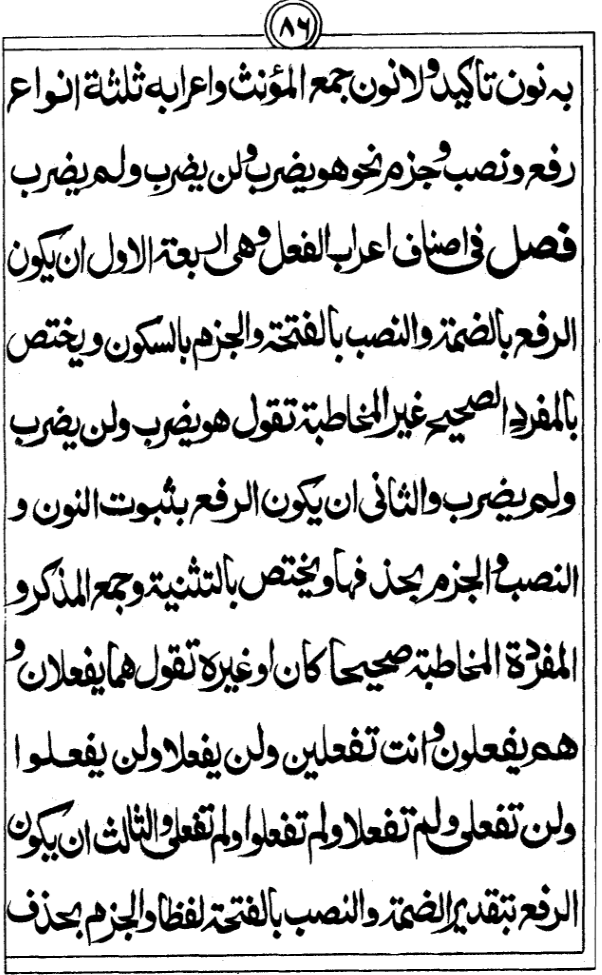 ٨٦
به نون تاكيد ولا نون جمع المؤنث واعرابه ثلثة انواع
رفع و نصب و جزم نحو هو يضرب ولن يضرب ولم يضرب
فصل فى اصناف اعراب الفعل وهى اربعة الاول ان يكون
الرفع بالضمة والنصب بالفتحة والجزم بالسكون و يختص
بالمفردِ الصحيح غير المخاطبة تقول هو يضرب ولن يضرب
ولم يضرب والثانى ان يكون الرفع بثبوت النون و
النصب والجزم بحذفها ويختص بالتثنية وجمع المذكر و
المفردة المخاطبة صحيحا كان او غيره تقول هما يفعلان و
هم يفعلون و انت تفعلين ولن يفعلا ولن يفعلوا
ولن تفعلى ولم تفعلا ولم تفعلوا ولم تفعلى والثالث ان يكون
الرفع بتقدير الضمة والنصب بالفتحة لفظا والجزم بحذف